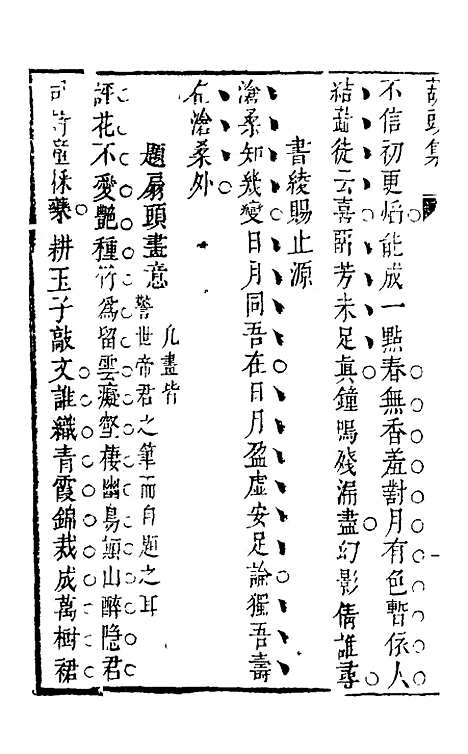 不信初更焰能成一點春無香羞對月有色暫依人
結蕋徒云喜爵芳未足真鐘鳴殘漏盡幻影倩誰尋
書綾賜止源
滄桑知幾變日月同吾在日月盈虛安足論獨吾壽
在滄桑外
題扇頭畫意
凡畫皆
警世帝君之筆而自題之耳
評花不愛艷種竹為留雲癡壑棲幽鳥頴山醉隐君
可特童採藥耕玉子敲文誰織青霞錦裁成萬樹裙